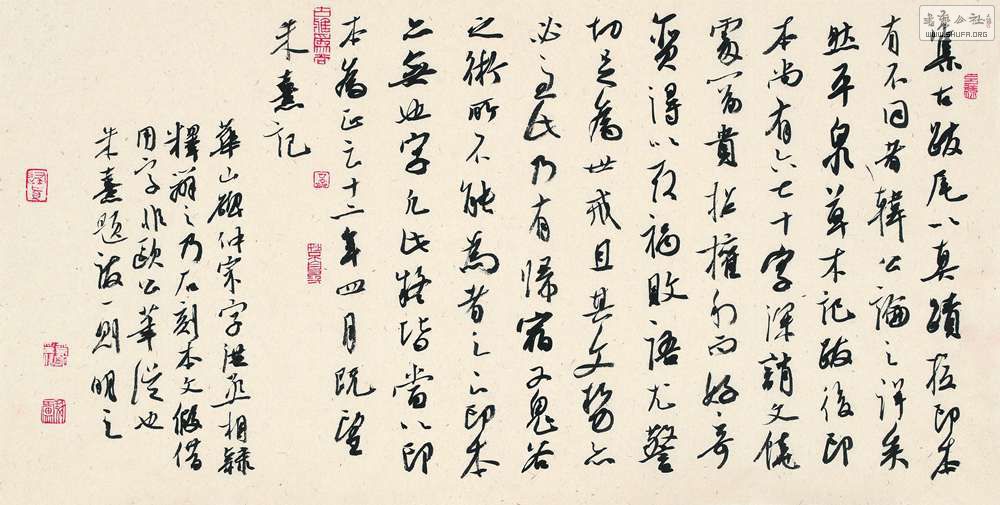 集古跋尾以真蹟校印本
有不同者韓公論之詳矣
然平泉草木記跋後印
本尚有六七十字深誚文饒
處富貴招權利而好奇
貪得以取禍敗語尤警
切足為世戒且其文勢亦
必至此乃有歸宿又鬼谷
之術所不能為者之下印本
亦無也字凡此疑皆當以印
本為正云十二年四月既望
朱熹記
華山碑仲宗字洪丞相隸
釋辯之乃石刻本文假借
用字非歐公筆誤也
朱熹題跋一則明之
WWW.SHUFA.ORG